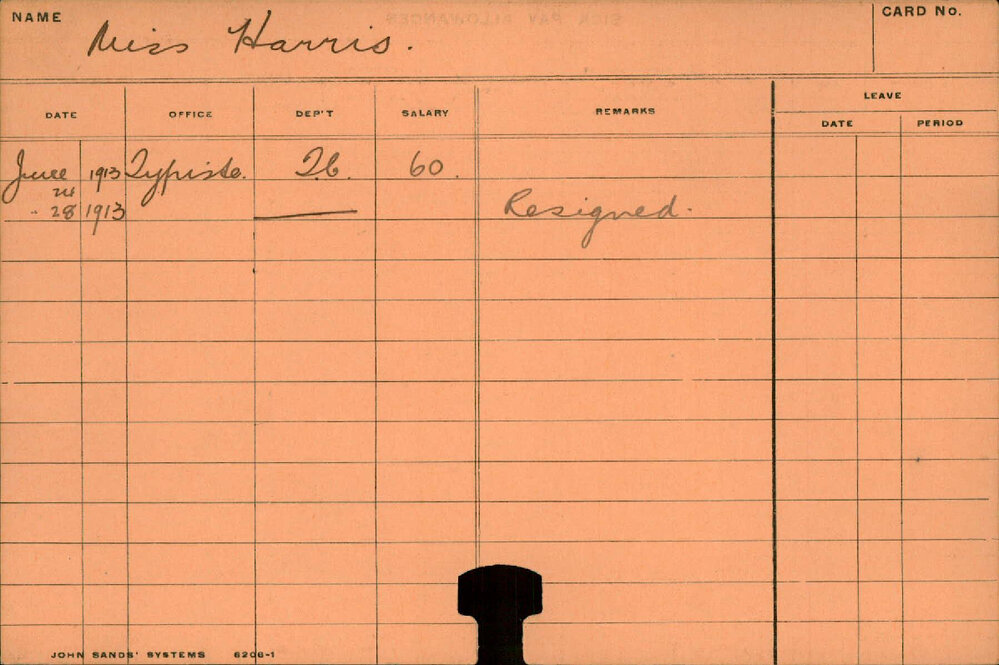 NAME Miss Harris. CARD No.
LEAVE
DATE OFFICE DEP'T SALARY REMARKS DATE PERIOD
June 1913 Typiste. 60.
24
" 28 1913 Resigned.
JOHN SANDS' SYSTEMS 6206-1